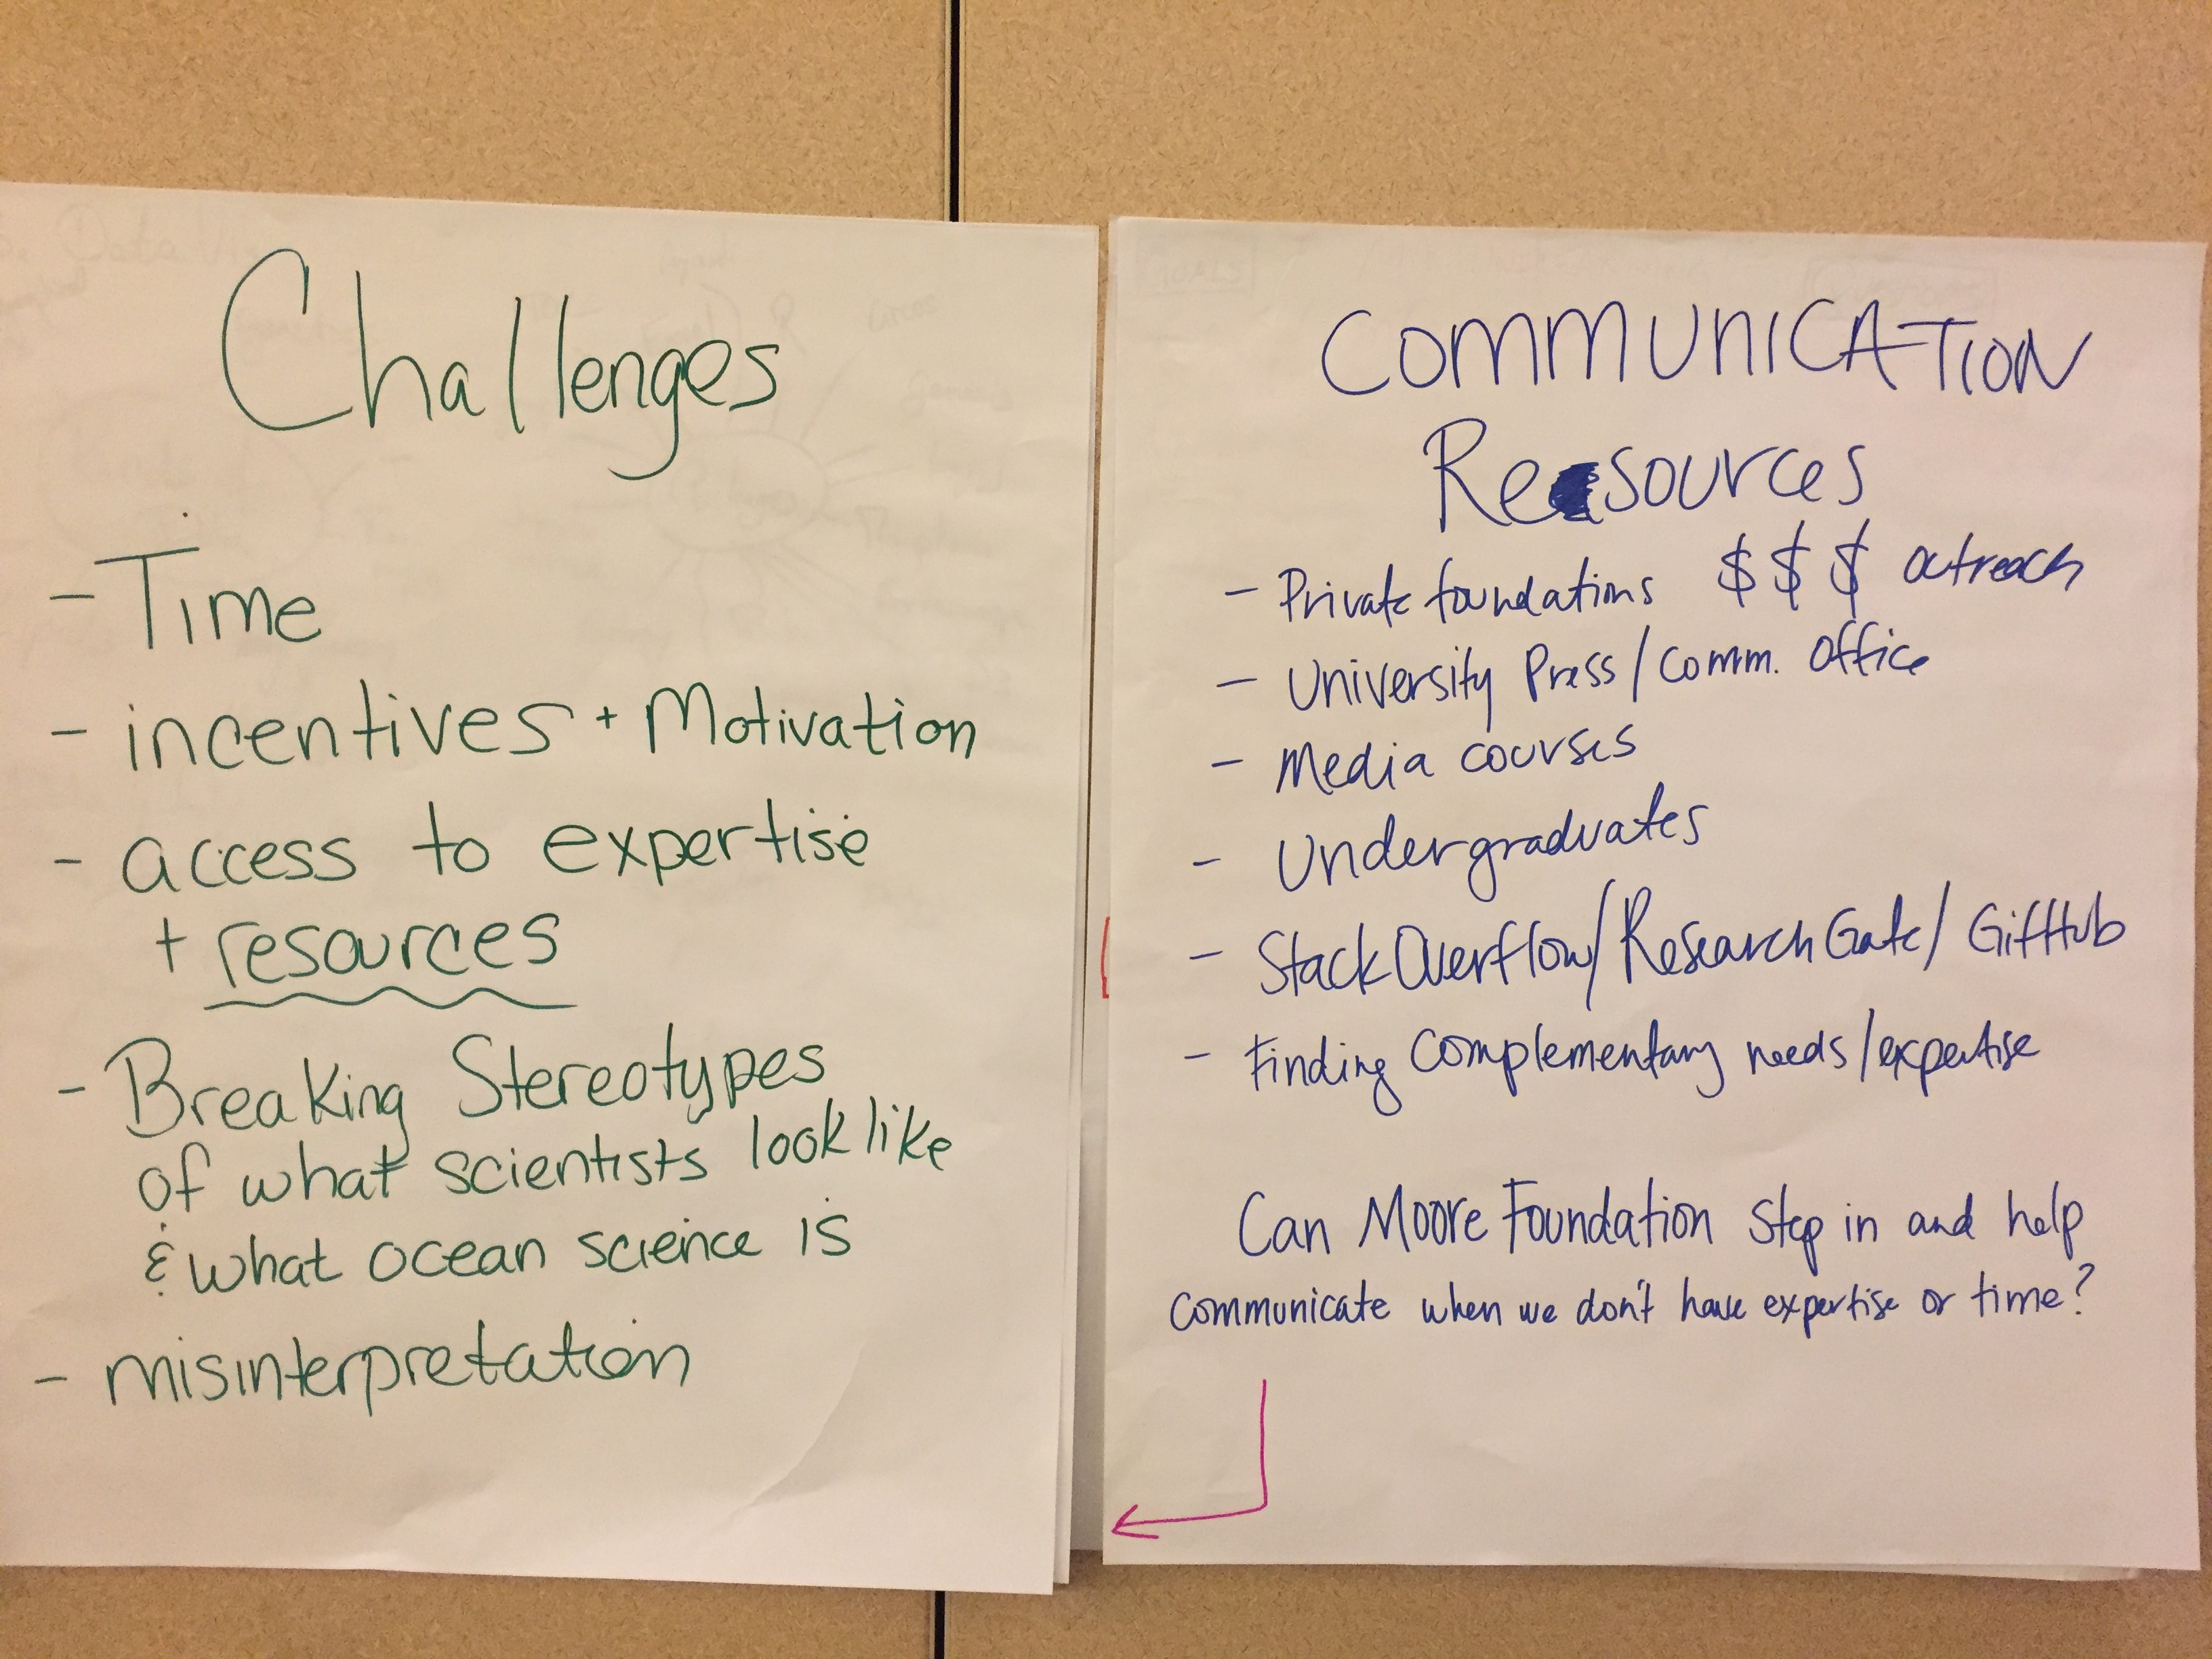 Challenges
- Time
- incentives + Motivation
- access to expertise
+ resources
- Breaking Stereotypes
of what scientists look like
& what ocean science is
- misinterpretation
COMMUNICATION
Resources
- Private foundations $$$ outreach
- University Press/comm. office
- Media courses
- Undergraduates
- Stack Overflow/ResearchGate/GitHub
- Finding Complementary needs/expertise
Can Moore Foundation step in and help
communicate when we don't have expertise or time?